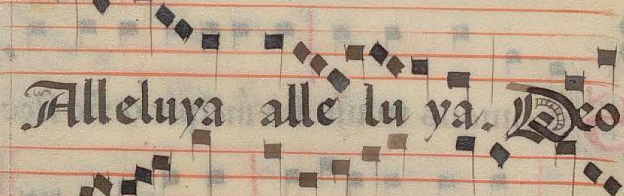 Alleluya alle lu ya. Deo